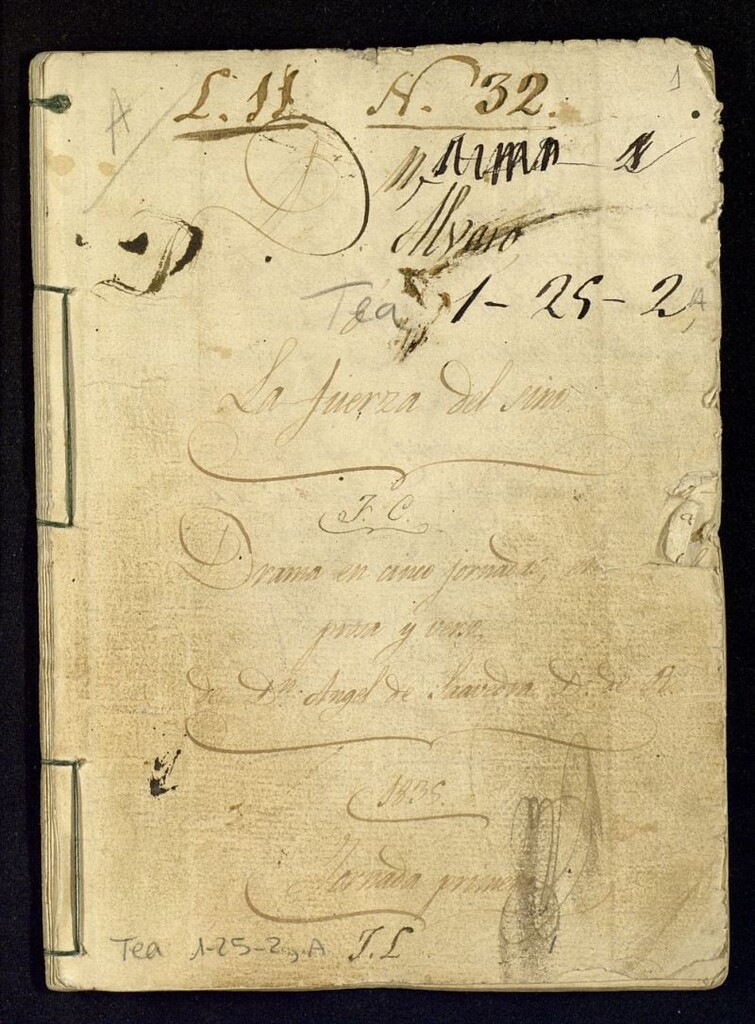 1
A
L. 11 N. 32.
D.
Alvaro,
Tea 1-25-2, A
La fuerza del sino
F. C.
Drama en cinco jornadas, en
prosa y verso
de Dn. Angel de Saavedra D. de R.
1835.
Jornada primera
Tea 1-25-2, A